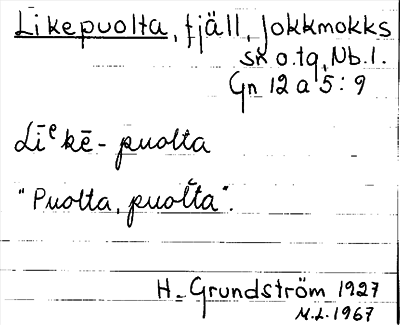 Likepuolta, fjäll, Jokkmokks
sk o. tg, Nb. l.
Gn 12 a 5:9
Līᵉkē- puolta
"Puolta, puoľta".
H. Grundström 1927
M.L. 1967